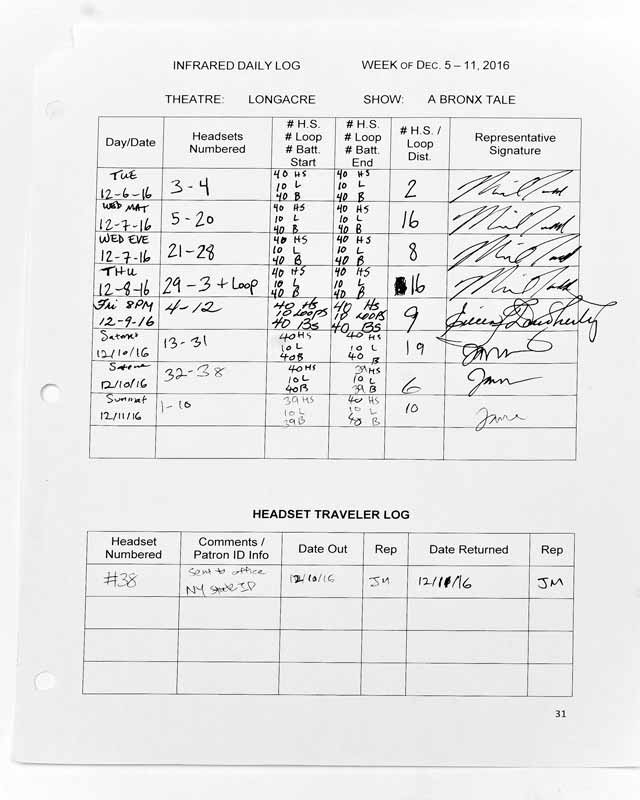 INFRARED DAILY LOG WEEK OF DEC. 5 – 11, 2016
THEATRE: LONGACRE SHOW: A BRONX TALE
Day/Date Headsets Numbered # H.S. # Loop # Batt. Start # H.S. # Loop # Batt. End # H.S. / Loop Dist. Representative Signature
TUE 12-6-16 3-4 40 HS 10 L 40 B 40 HS 10 L 40 B 2
WED MAT 12-7-16 5-20 40 HS 10 L 40 B 40 HS 10 L 40 B 16
WED EVE 12-7-16 21-28 40 HS 10 L 40 B 40 HS 10 L 40 B 8
THU 12-8-16 29-3 + Loop 40 HS 10 L 40 B 40 HS 10 L 40 B 16
Fri 8PM 12-9-16 4-12 40 HS 10 Loops 40 Bs 40 HS 10 LOOPS 40 Bs 9
12/10/16 13-31 40HS 10 L 40B 40 HS 10 L 40 B 19
12/10/16 32-38 40HS 10 L 40B 39HS 10 L 39 B 6
12/11/16 1-10 39HS 10 L 39B 40 HS 10 L 40 B 10
HEADSET TRAVELER LOG
Headset Numbered Comments / Patron ID Info Date Out Rep Date Returned Rep
#38 Sent to office NY State ID 12/10/16 JM 12/11/16 JM
31